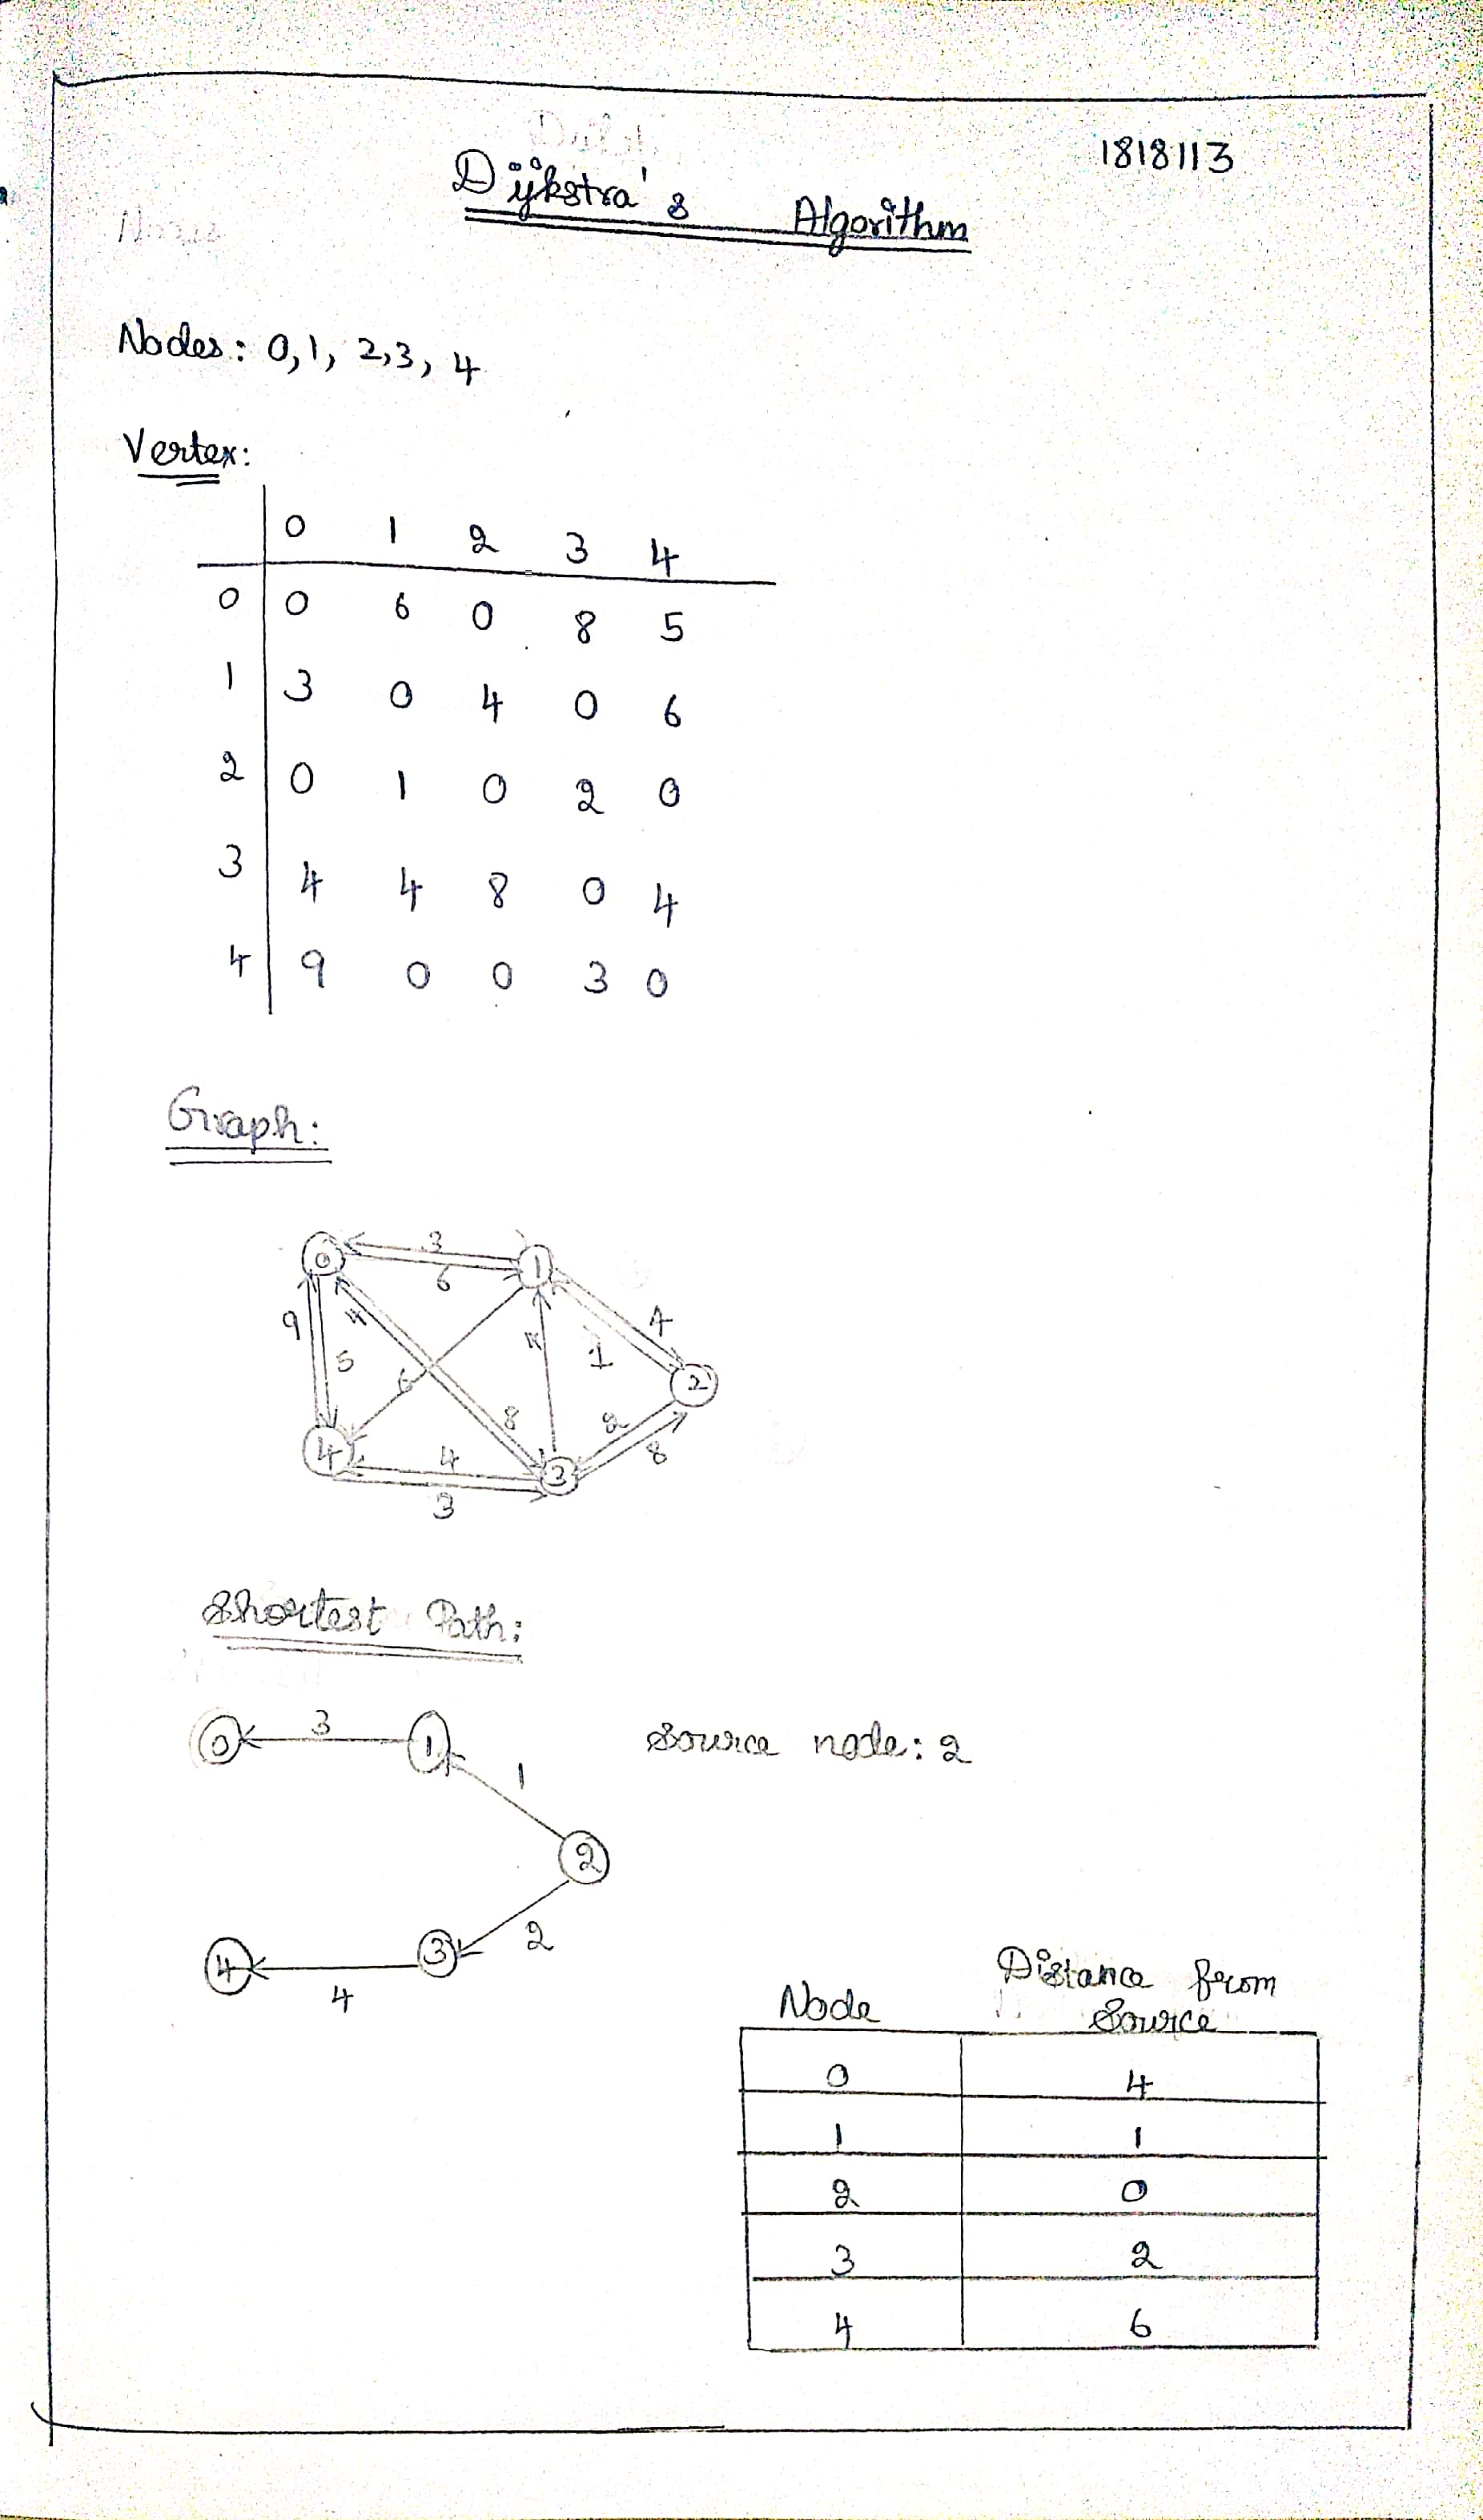 1818113
Dijkstra's Algorithm
Nodes: 0, 1, 2, 3, 4
Vertex:
0 1 2 3 4
0 0 6 0 8 5
1 3 0 4 0 6
2 0 1 0 2 0
3 4 4 8 0 4
4 9 0 0 3 0
Graph:
0 3 1
6
9 4 4 4
5 1
6 2
8 2
4 4 8
3
3
Shortest Path:
0 3 1 Source node: 2
1
2
2
4 3
4
Node Distance from
Source
0 4
1 1
2 0
3 2
4 6